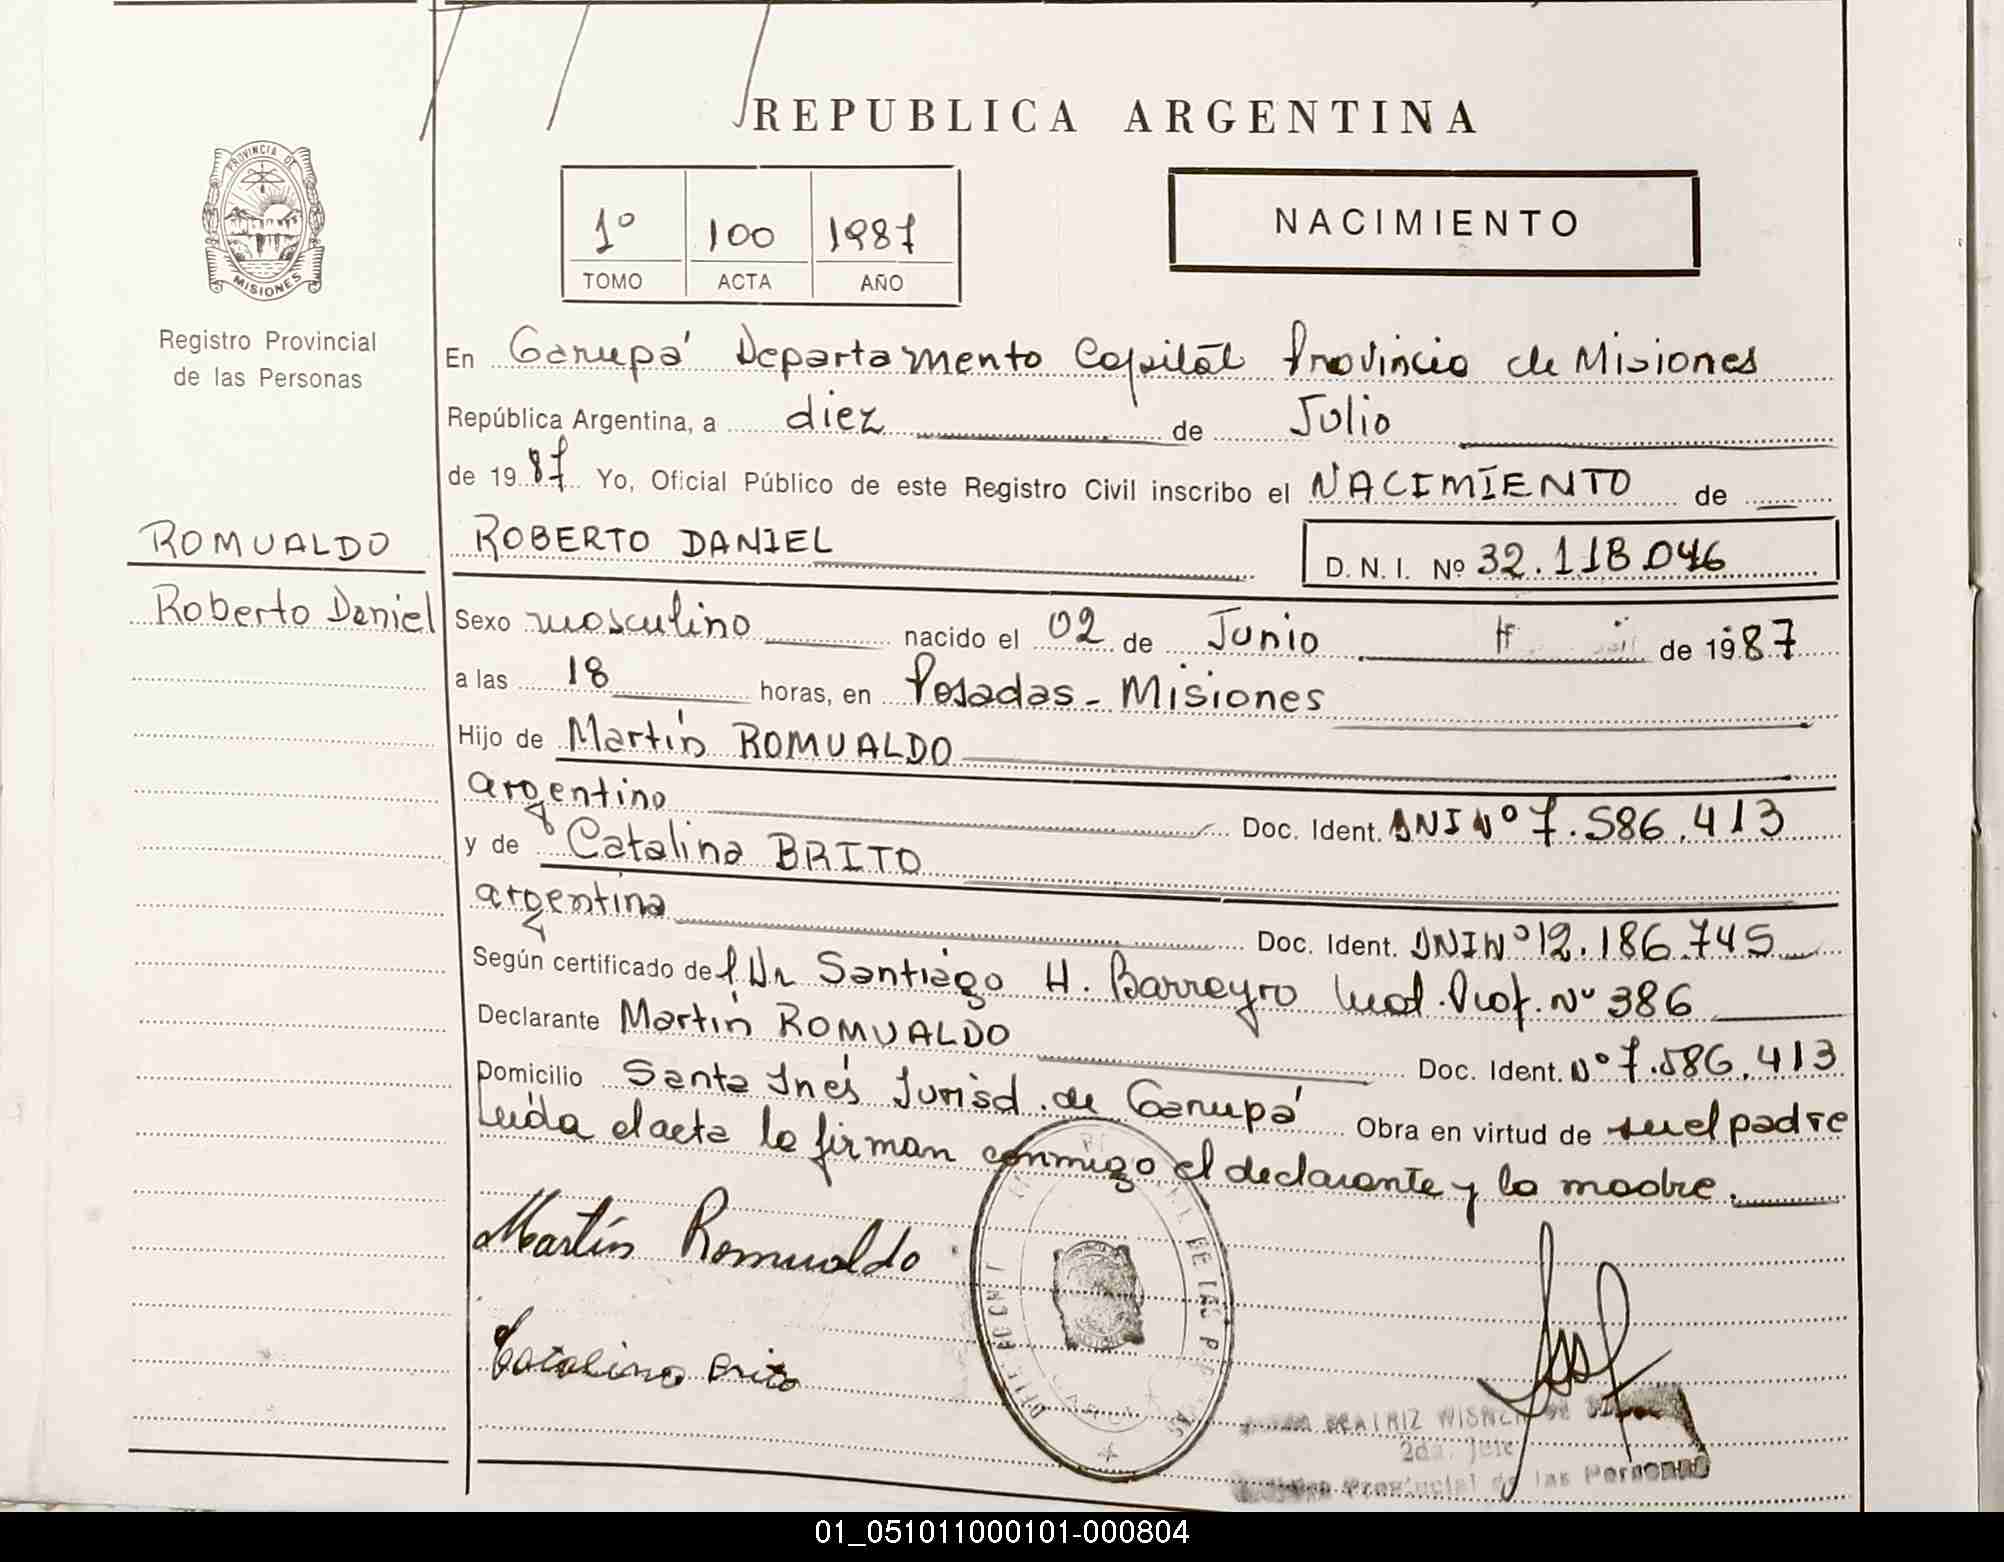 REPUBLICA ARGENTINA
PROVINCIA DE
MISIONES
1º 100 1987
TOMO ACTA AÑO
NACIMIENTO
Registro Provincial
de las Personas
En Garupá Departamento Capital Provincia de Misiones
República Argentina, a diez de Julio
de 1987 Yo, Oficial Público de este Registro Civil inscribo el NACIMIENTO de
ROMUALDO
ROBERTO DANIEL
D. N. I. Nº 32.118.046
Roberto Daniel
Sexo masculino nacido el 02 de Junio de 1987
a las 18 horas, en Posadas - Misiones
Hijo de Martín ROMUALDO
argentino Doc. Ident. DNI Nº 7.586.413
y de Catalina BRITO
argentina Doc. Ident. DNI Nº 12.186.745
Según certificado del Dr Santiago H. Barreyro Med. Prof. Nº 386
Declarante Martín ROMUALDO Doc. Ident. Nº 7.586.413
Domicilio Santa Inés Jurisd. de Garupá Obra en virtud de ser el padre
Leída el acta la firman conmigo el declarante y la madre.
Martín Romualdo
Catalina Brito
BEATRIZ
2da. Jefe
Provincial de las Personas
01_051011000101-000804